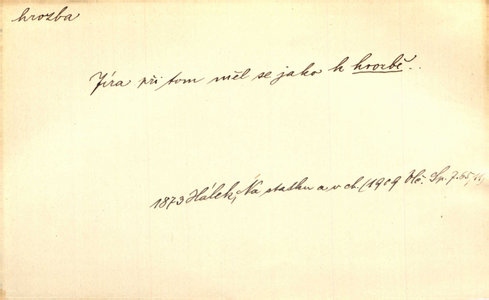 hrozba
Jíra při tom měl se jako k hrozbě..
1873 Hálek, Na statku a v ch. (1909 Sp. 7.